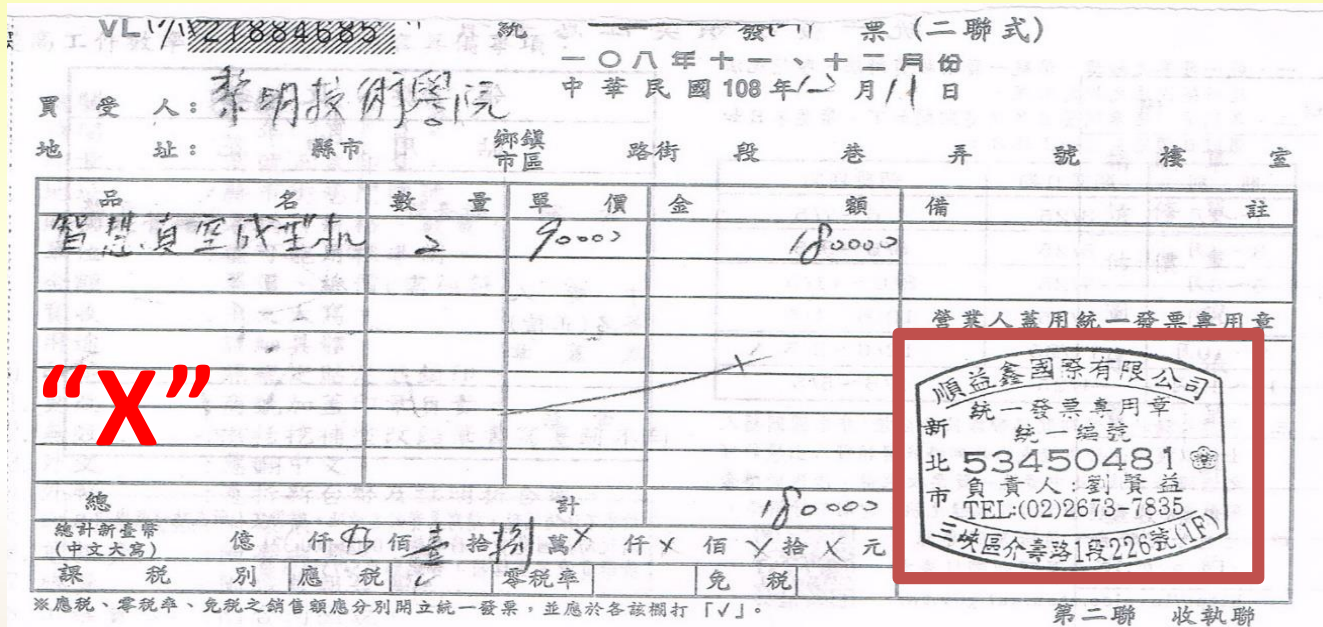 VL 21884685 統一發票(二聯式)
一〇八年十一、十二月份
中華民國 108 年 12 月 11 日
買受人：黎明技術學院
地址： 縣市 鄉鎮市區 路街 段 巷 弄 號 樓 室
品名 數量 單價 金額 備註
智慧真空成型机 2 90000 180000
營業人蓋用統一發票專用章
“X”
順益鑫國際有限公司
統一發票專用章
統一編號
53450481
負責人:劉賢益
TEL:(02)2673-7835
新北市三峽區介壽路1段226號(1F)
總計 180000
總計新臺幣(中文大寫) 億 仟 佰 壹 拾 捌 萬 X 仟 X 佰 X 拾 X 元
課稅別 應稅 ✓ 零稅率 免稅
※應稅、零稅率、免稅之銷售額應分別開立統一發票，並應於各該欄打「✓」。
第二聯 收執聯